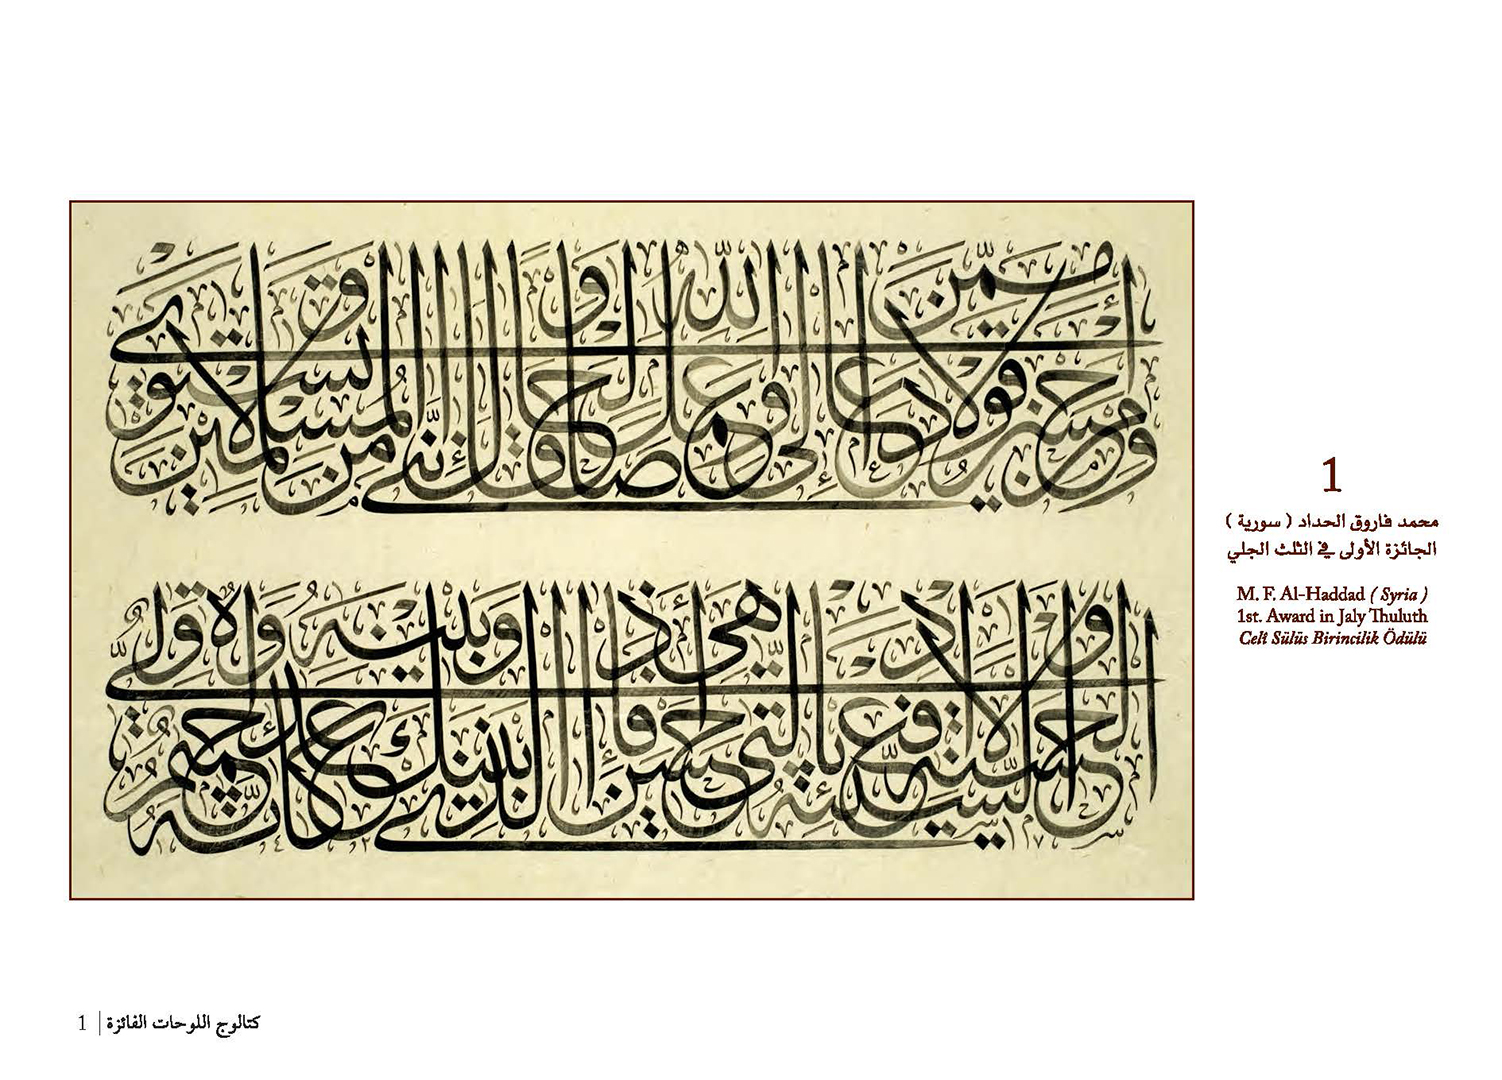 ومن أحسن قولا ممن دعا إلى الله وعمل صالحا وقال إنني من المسلمين ولا تستوي
الحسنة ولا السيئة ادفع بالتي هي أحسن فإذا الذي بينك وبينه عداوة كأنه ولي حميم
1
محمد فاروق الحداد ( سورية )
الجائزة الأولى في الثلث الجلي
M. F. Al-Haddad ( Syria )
1st. Award in Jaly Thuluth
Celî Sülüs Birincilik Ödülü
كتالوج اللوحات الفائزة | 1